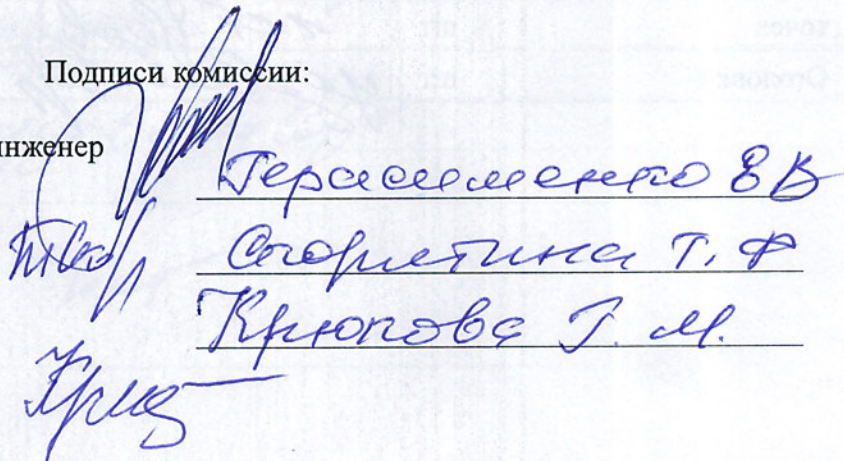 Подписи комиссии:
инженер
Герасименко ЕВ
Т. Ф
Крюкова Г. М.